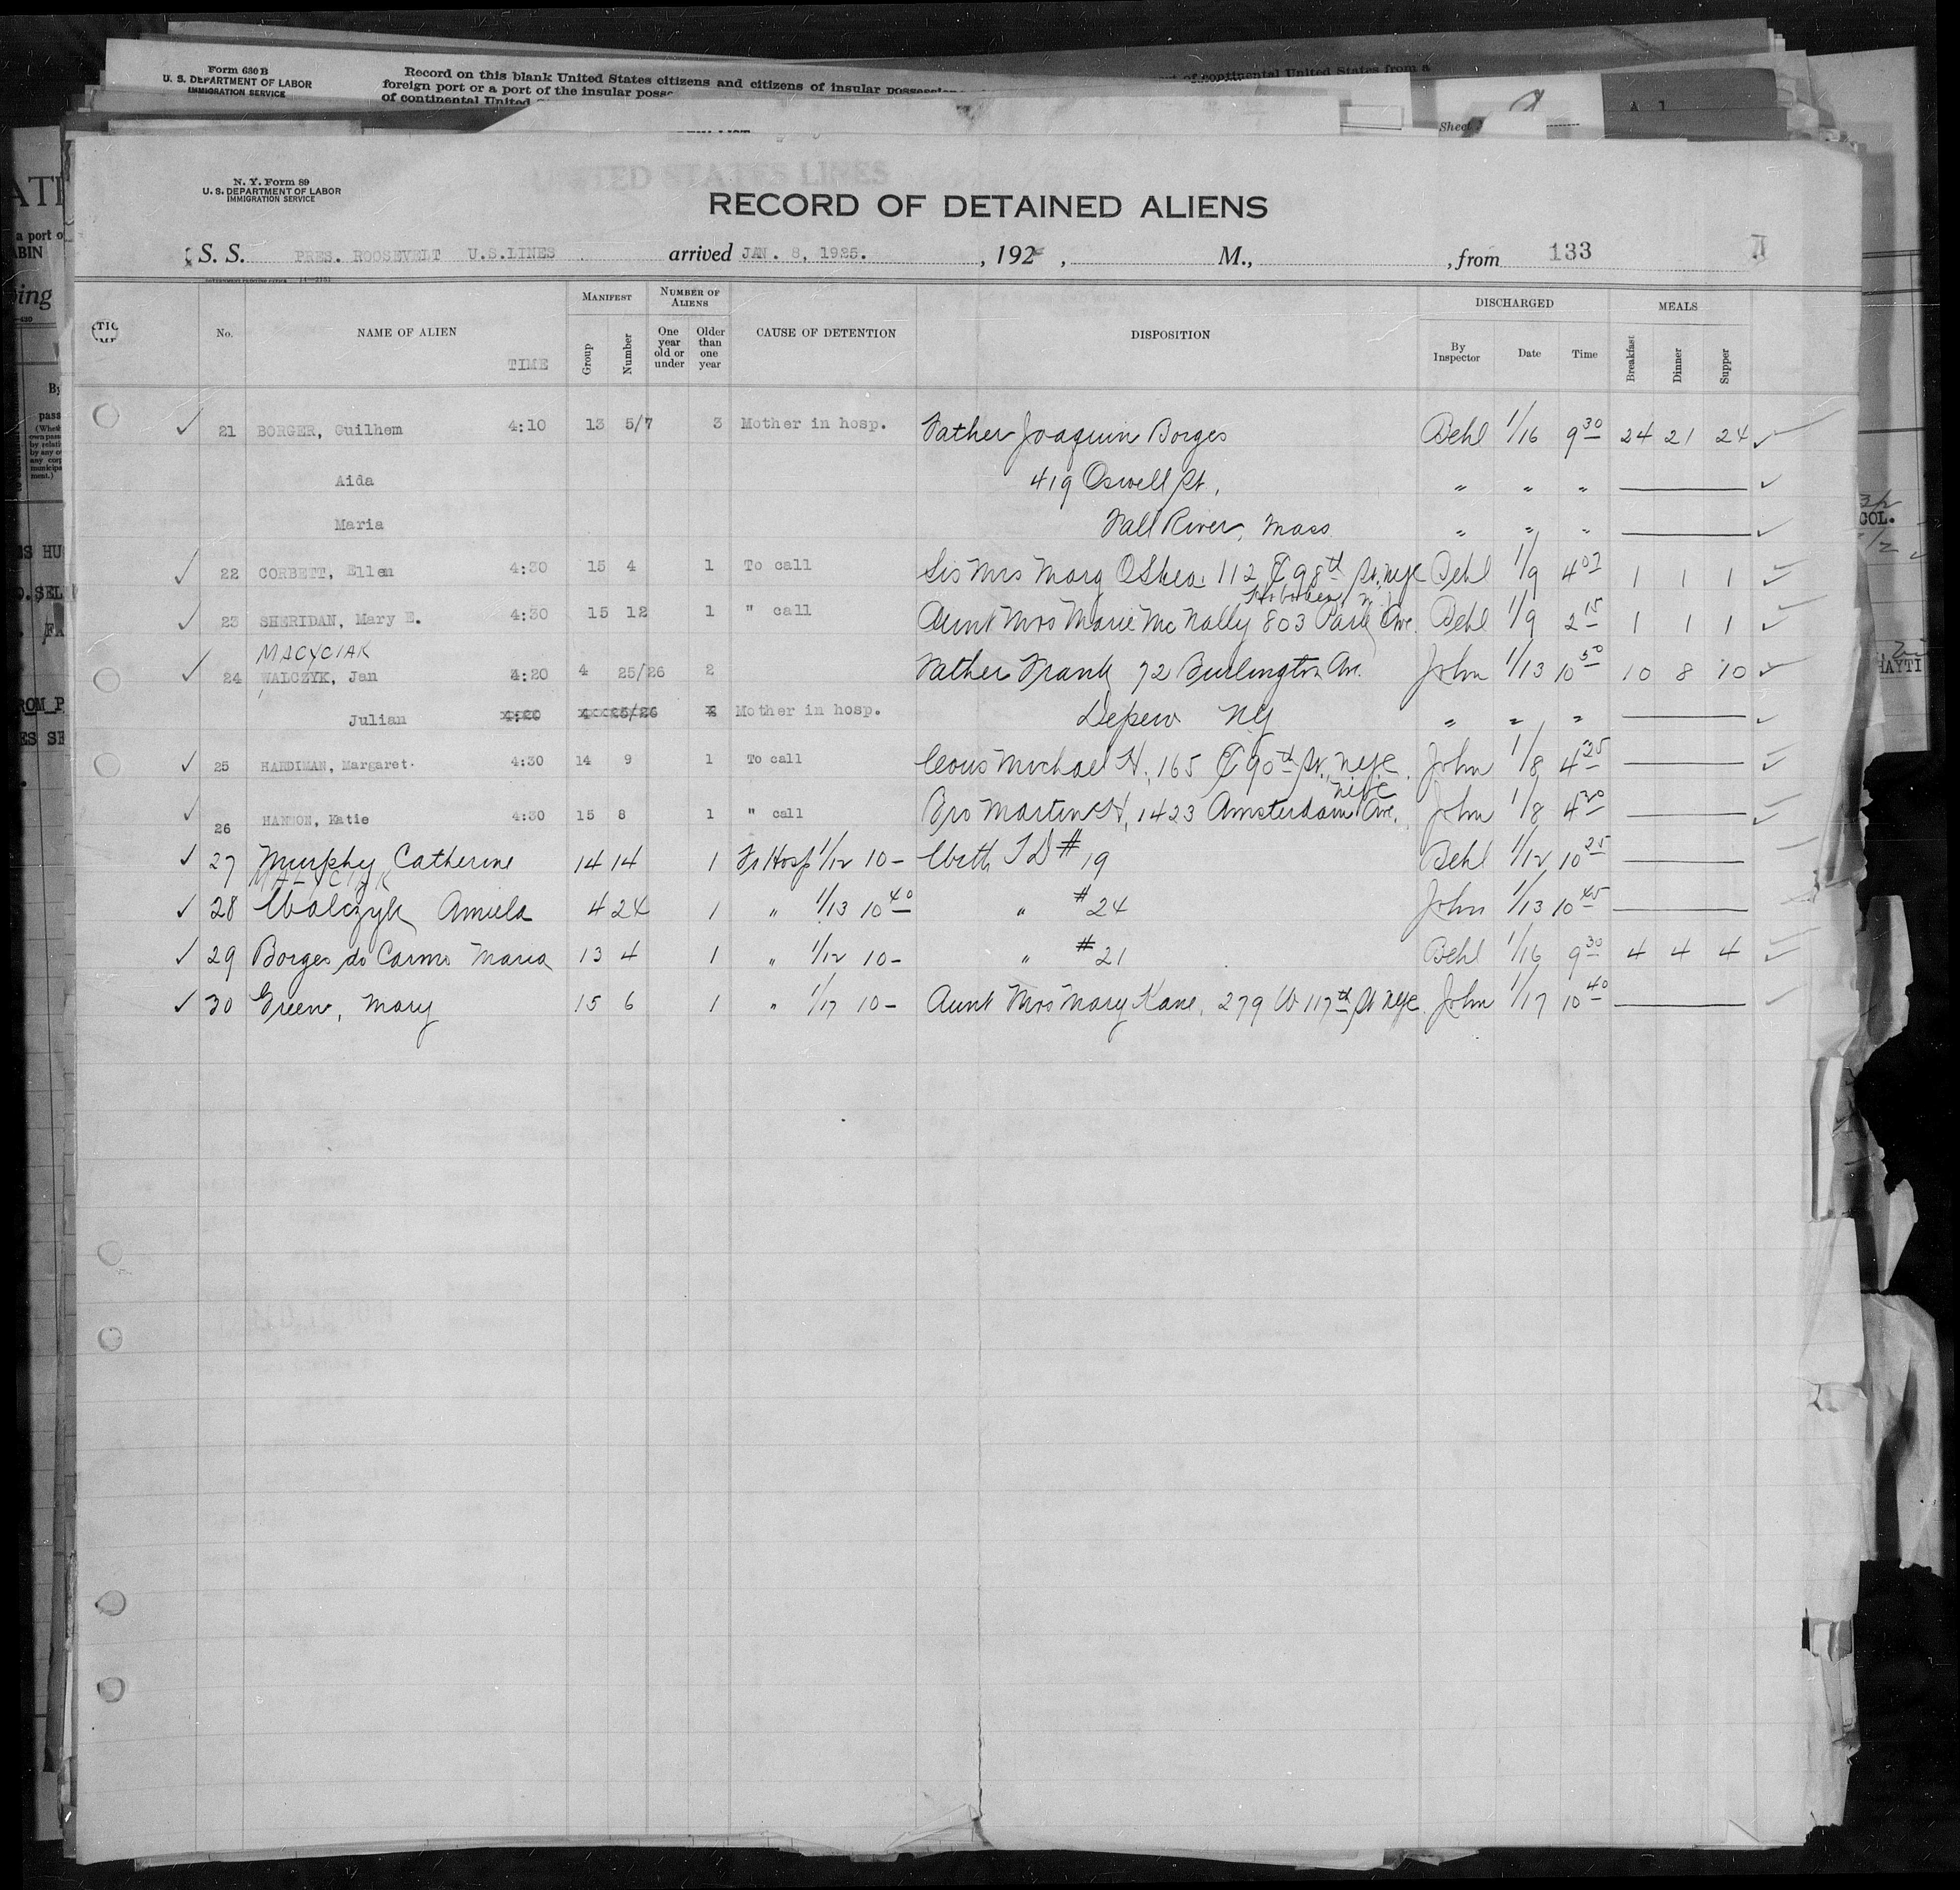 Form 630 B
U. S. DEPARTMENT OF LABOR
IMMIGRATION SERVICE
Record on this blank United States citizens and citizens of insular
foreign port or a port of the insular
of continental United
of continental United States from a
Sheet
A 1
UNITED STATES LINES
N. Y. Form 89
U. S. DEPARTMENT OF LABOR
IMMIGRATION SERVICE
RECORD OF DETAINED ALIENS
S. S. PRES. ROOSEVELT U.S.LINES arrived JAN. 8, 1925. , 192 , M., , from 133
No. NAME OF ALIEN TIME MANIFEST Group Number NUMBER OF ALIENS One year old or under Older than one year CAUSE OF DETENTION DISPOSITION DISCHARGED By Inspector Date Time MEALS Breakfast Dinner Supper
✓ 21 BORGER, Guilhem 4:10 13 5/7 3 Mother in hosp. Father Joaquin Borges Behl 1/16 9 30 24 21 24 ✓
Aida 419 Oswell St., " " " ✓
Maria Fall River, Mass. " " " ✓
✓ 22 CORBETT, Ellen 4:30 15 4 1 To call Sis Mrs Marg OShea 112 E 98th St. nyc Behl 1/9 4 07 1 1 1 ✓
Hoboken NJ
✓ 23 SHERIDAN, Mary E. 4:30 15 12 1 " call Aunt Mrs Marie McNally 803 Park Ave. Behl 1/9 2 15 1 1 1 ✓
MACYCIAK
✓ 24 WALCZYK, Jan 4:20 4 25/26 2 Father Frank 72 Burlington Av. John 1/13 10 50 10 8 10 ✓
Julian 4:20 4 25/26 2 Mother in hosp. Depew NY " " " ✓
✓ 25 HARDIMAN, Margaret. 4:30 14 9 1 To call Cous Michael H, 165 E 90th St., nyc. John 1/8 4 25 ✓
nyc
✓ 26 HANNON, Katie 4:30 15 8 1 " call Bro Martin H, 1423 Amsterdam Ave. John 1/8 4 20 ✓
✓ 27 Murphy Catherine 14 14 1 Fr Hosp 1/12 10- With TD #19 Behl 1/12 10 25
✓ 28 Walczyk Aniela 4 24 1 " 1/13 10 40 " #24 John 1/13 10 45
✓ 29 Borges do Carmo Maria 13 4 1 " 1/12 10- " #21 Behl 1/16 9 30 4 4 4 ✓
✓ 30 Green, Mary 15 6 1 " 1/17 10- Aunt Mrs Mary Kane, 279 W 117th St nyc. John 1/17 10 40 ✓